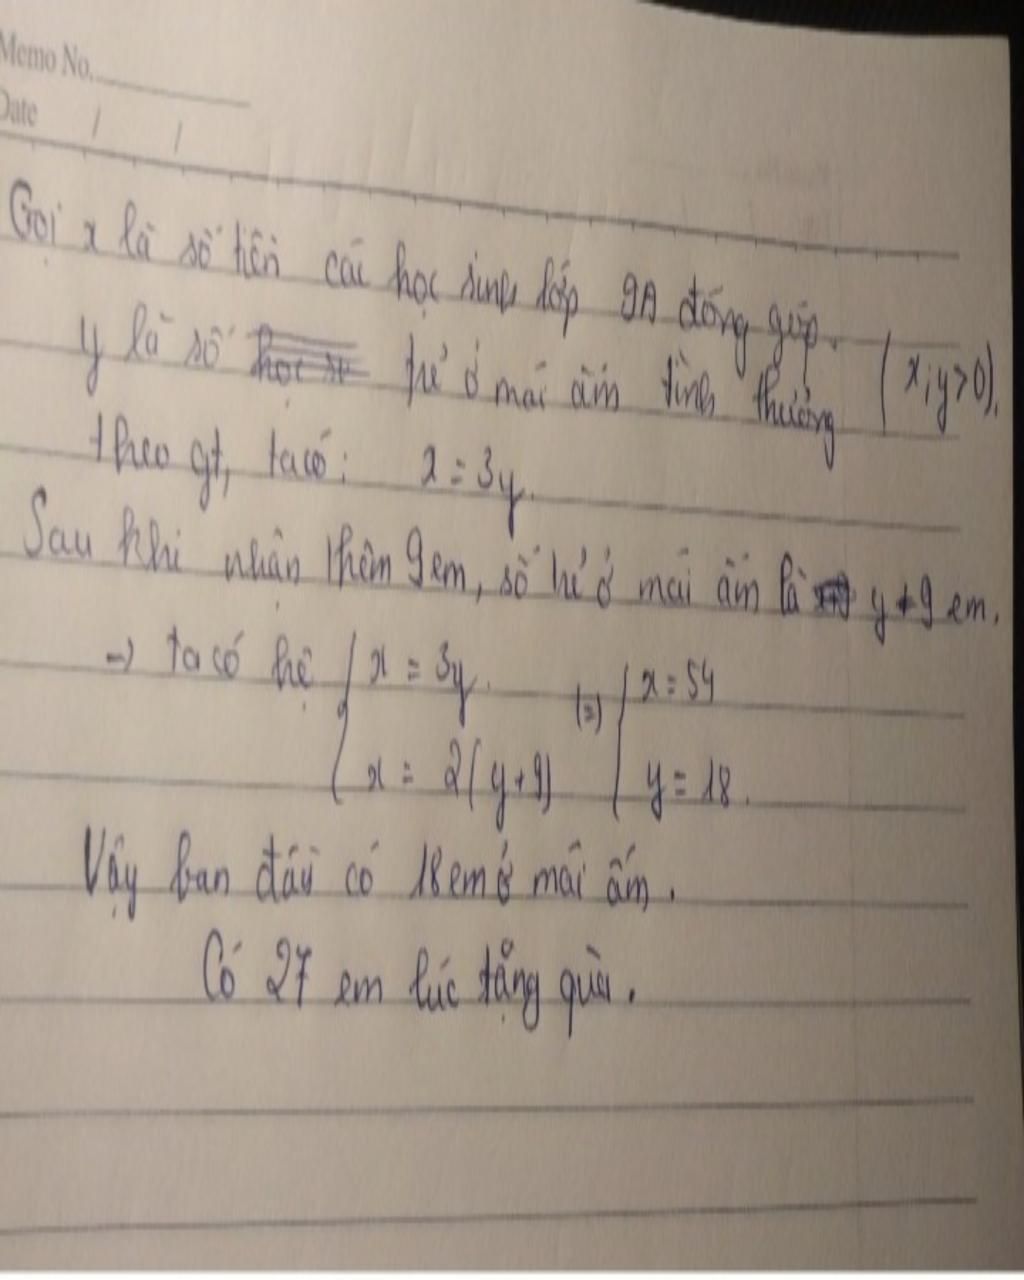 Memo No.
Date / /
Gọi x là số tiền các học sinh lớp 9A đóng góp.
y là số trẻ ở mái ấm tình thương (x;y>0).
theo gt, ta có: x = 3y.
Sau khi nhận thêm 9 em, số trẻ ở mái ấm là y+9 em.
=> ta có hệ { x = 3y. (=) { x = 54
x = 2(y+9) y = 18.
Vậy ban đầu có 18 em ở mái ấm.
Có 27 em lúc tặng quà.